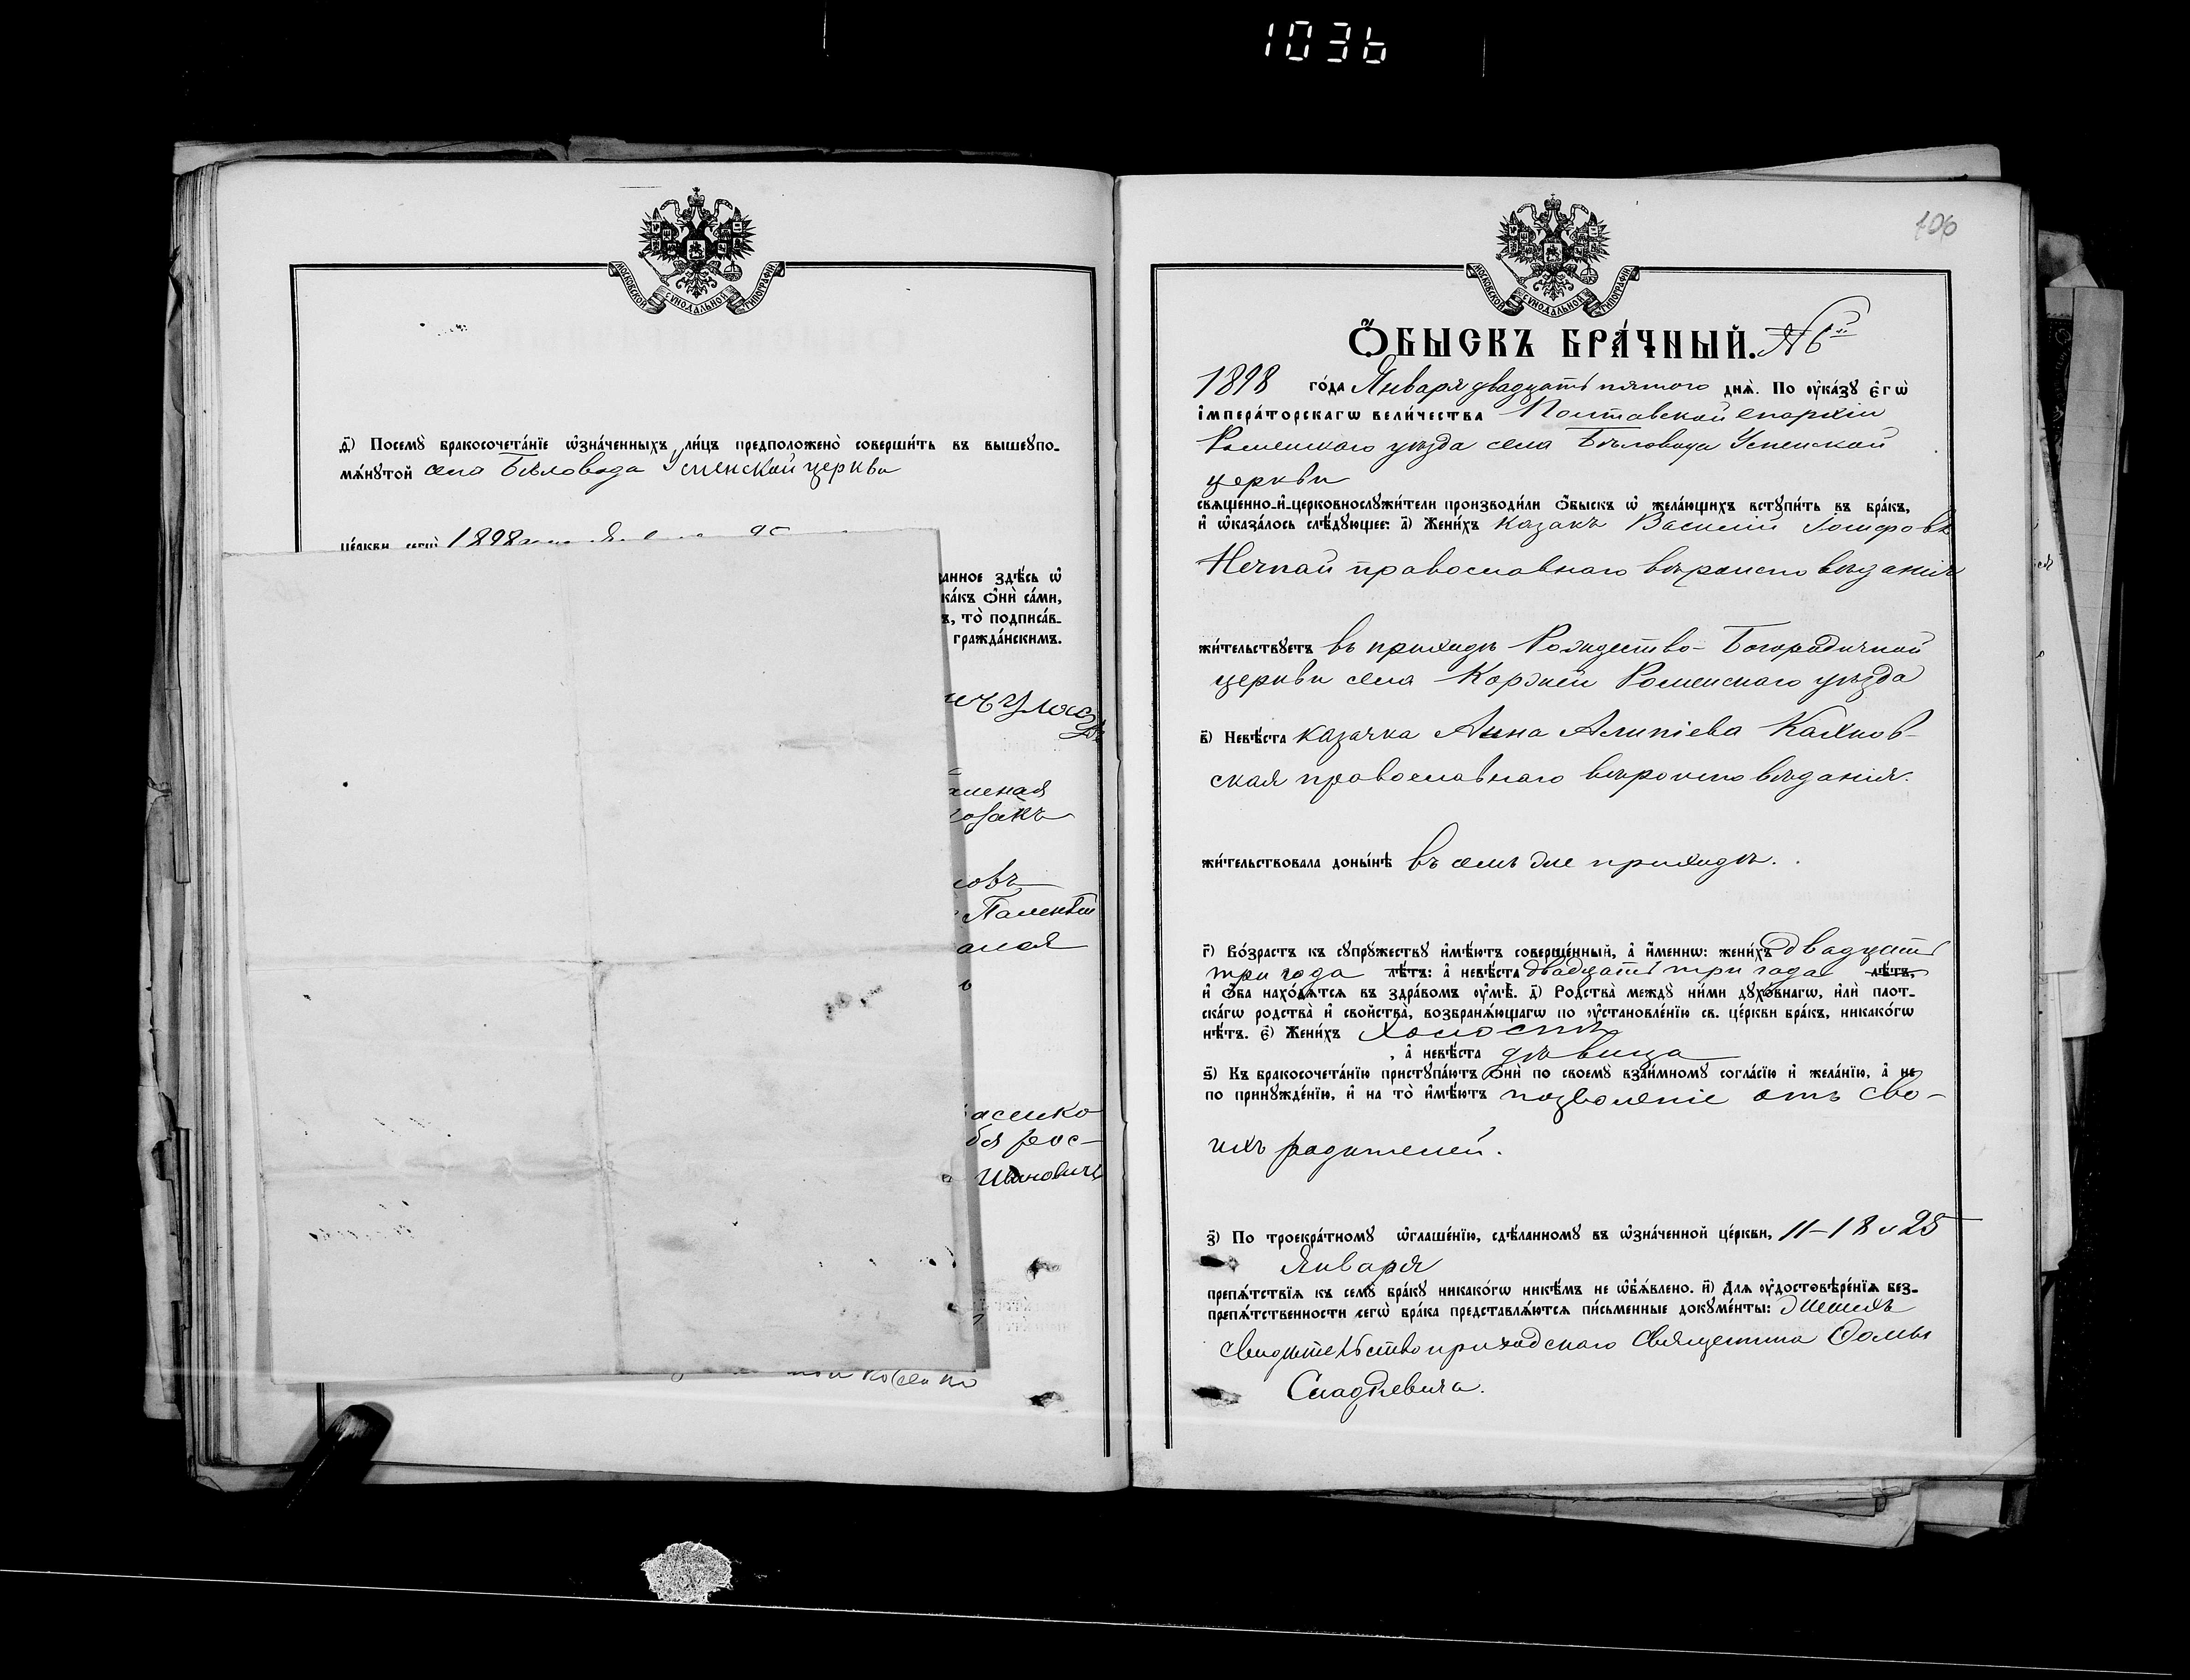 1036
МОСКОВСКОЙ СѴНОДАЛЬНОЙ ТИПОГРАФІИ.
д҃) Посемꙋ бракосочета́нїе ѡ҆зна́ченныхъ ли́цъ предположено̀ соверши́ть въ вышеꙋпо-
мѧ́нꙋтой села Бѣловода Успенской церкви
це́ркви сегѡ̀ 1898
анное здѣ́сь ѡ҆
ка́къ Ѻ҆нѝ са́ми,
ъ, то̀ подписа́в-
гражда́нскимъ.
козакъ
овъ
Ивановичъ
106
МОСКОВСКОЙ СѴНОДАЛЬНОЙ ТИПОГРАФІИ.
Ѻ҆БЫСКЪ БРА́ЧНЫЙ. № 6й
1898 го́да Января двадцать пятого днѧ̀. По ᲂу҆ка́зꙋ Є҆гѡ̀
і҆мпера́торскагѡ вели́чества Полтавской епархіи
Роменскаго уѣзда села Бѣловода Успенской
церкви
свѧще́нно-и҆-церковнослꙋжи́тели производи́ли Ѻ҆́быскъ ѡ҆ жела́ющихъ встꙋпи́ть въ бра́къ,
и҆ ѡ҆каза́лось слѣ́дꙋющее: а҃) Жени́хъ казакъ Василій Іосифовъ
Нечпай православнаго вѣроисповѣданія
жи́тельствꙋетъ въ приходѣ Рождество-Богородичной
церкви села Коржей Роменскаго уѣзда
в҃) Невѣ́ста казачка Анна Алипіева Кахнов-
ская православнаго вѣроисповѣданія.
жи́тельствовала доны́нѣ въ семъ же приходѣ.
г҃) Во́зрастъ къ сꙋпрꙋ́жествꙋ и҆мѣ́ютъ соверше́нный, а҆ и҆́меннѡ: жени́хъ двадцать
три года лѣ́тъ: а҆ невѣ́ста двадцать три года лѣ́тъ,
и҆ Ѻ҆́ба нахо́дѧтсѧ въ здра́вомъ ᲂу҆мѣ̀. д҃) Родства̀ междꙋ̀ ни́ми дꙋхо́внагѡ, и҆лѝ плот-
ска́гѡ родства̀ и҆ сво́йства, возбранѧ́ющагѡ по ᲂу҆становле́нїю св. це́ркви бра́къ, никако́гѡ
нѣ́тъ. є҃) Жени́хъ холостъ
, а҆ невѣ́ста дѣвица
ѕ҃) Къ бракосочета́нїю пристꙋпа́ютъ Ѻ҆нѝ по своемꙋ̀ взаи́мномꙋ согла́сїю и҆ жела́нїю, а҆ не
по принꙋжде́нїю, и҆ на то̀ и҆мѣ́ютъ позволеніе отъ сво-
ихъ родителей.
з҃) По троекра́тномꙋ ѡ҆глаше́нїю, сдѣ́ланномꙋ въ ѡ҆зна́ченной це́ркви, 11-18 и 25
Января
препѧ́тствїѧ къ семꙋ̀ бра́кꙋ никако́гѡ никѣ́мъ не ѡ҆бъѧ́влено. и҃) Для ᲂу҆достовѣре́нїѧ без-
препѧ́тственности сегѡ̀ бра́ка представлѧ́ютсѧ пи́сьменные докꙋме́нты: женихъ
свидѣтельство приходскаго священника Ѳомы